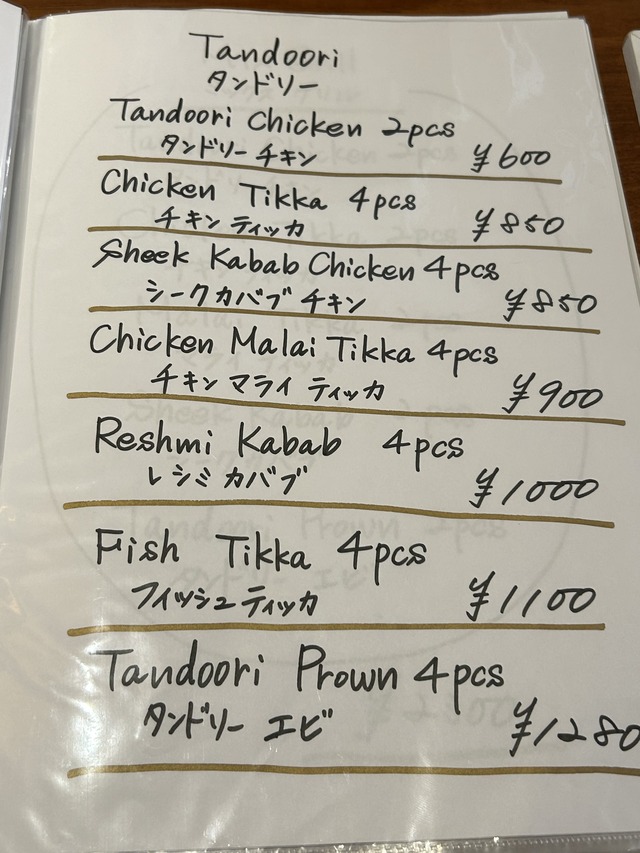 Tandoori
タンドリー
Tandoori Chicken 2pcs
タンドリーチキン ¥600
Chicken Tikka 4pcs
チキンティッカ ¥850
Sheek Kabab Chicken 4pcs
シークカバブチキン ¥850
Chicken Malai Tikka 4pcs
チキンマライティッカ ¥900
Reshmi Kabab 4pcs
レシミカバブ ¥1000
Fish Tikka 4pcs
フィッシュティッカ ¥1100
Tandoori Prown 4pcs
タンドリー エビ ¥1280